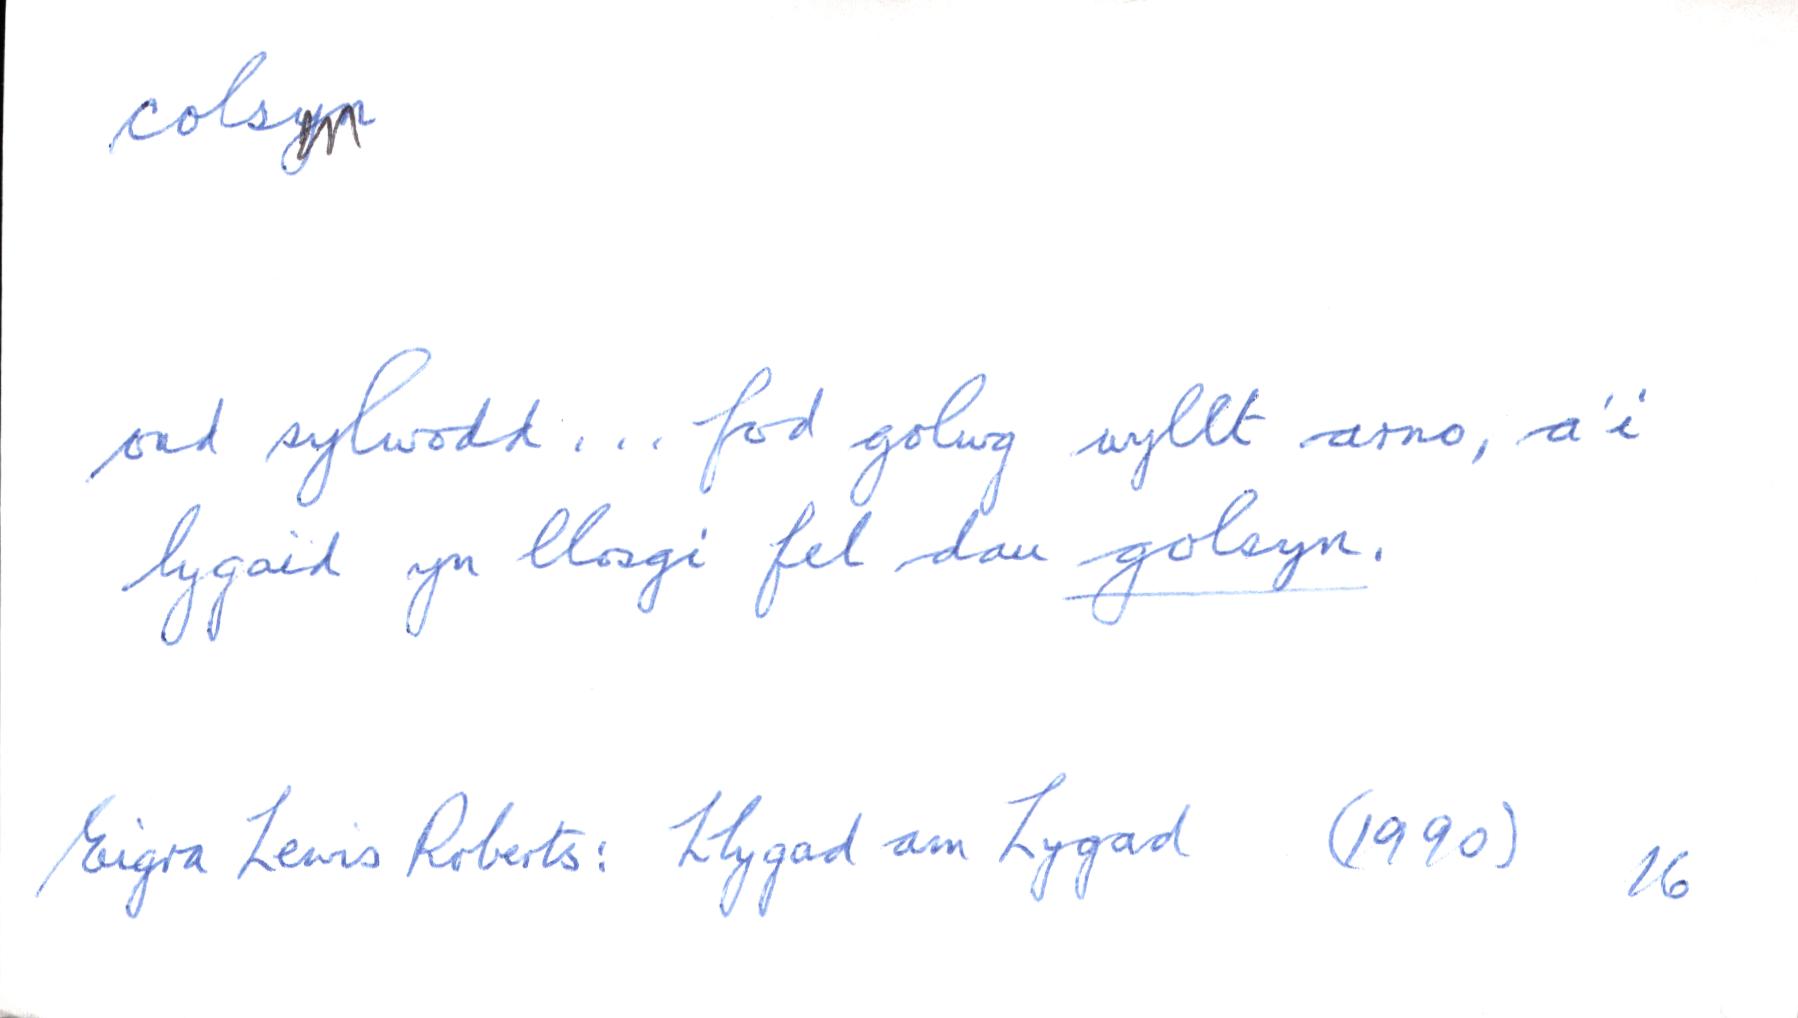 colsyn
ond sylwodd ... fod golwg wyllt arno, a'i
lygaid yn llosgi fel dau golsyn.
Eigra Lewis Roberts: Llygad am Lygad (1990) 16